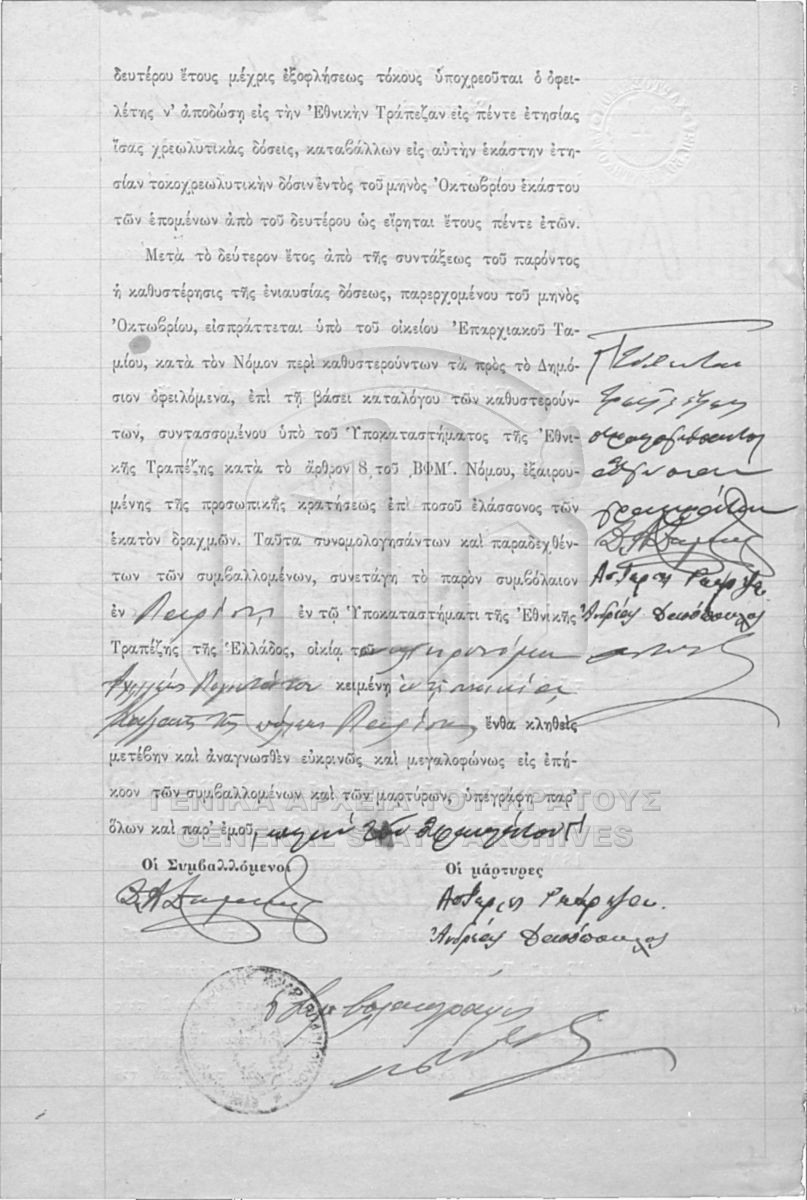 δευτέρου ἔτους μέχρις ἐξοφλήσεως τόκους ὑποχρεοῦται ὁ ὀφει-
λέτης ν' ἀποδώσῃ εἰς τὴν Ἐθνικὴν Τράπεζαν εἰς πέντε ἐτησίας
ἴσας χρεωλυτικὰς δόσεις, καταβάλλων εἰς αὐτὴν ἑκάστην ἐτη-
σίαν τοκοχρεωλυτικὴν δόσιν ἐντὸς τοῦ μηνὸς Ὀκτωβρίου ἑκάστου
τῶν ἑπομένων ἀπὸ τοῦ δευτέρου ὡς εἴρηται ἔτους πέντε ἐτῶν.
Μετὰ τὸ δεύτερον ἔτος ἀπὸ τῆς συντάξεως τοῦ παρόντος
ἡ καθυστέρησις τῆς ἐνιαυσίας δόσεως, παρερχομένου τοῦ μηνὸς
Ὀκτωβρίου, εἰσπράττεται ὑπὸ τοῦ οἰκείου Ἐπαρχιακοῦ Τα-
μίου, κατὰ τὸν Νόμον περὶ καθυστερούντων τὰ πρὸς τὸ Δημό-
σιον ὀφειλόμενα, ἐπὶ τῇ βάσει καταλόγου τῶν καθυστερούν-
των, συντασσομένου ὑπὸ τοῦ Ὑποκαταστήματος τῆς Ἐθνι-
κῆς Τραπέζης κατὰ τὸ ἄρθρον 8 τοῦ ͵ΒΦΜʹ. Νόμου, ἐξαιρου-
μένης τῆς προσωπικῆς κρατήσεως ἐπὶ ποσοῦ ἐλάσσονος τῶν
ἑκατὸν δραχμῶν. Ταῦτα συνομολογησάντων καὶ παραδεχθέν-
των τῶν συμβαλλομένων, συνετάγη τὸ παρὸν συμβόλαιον
ἐν Λαρίσῃ ἐν τῷ Ὑποκαταστήματι τῆς Ἐθνικῆς
Τραπέζης τῆς Ἑλλάδος, οἰκίᾳ
κειμένῃ
τῆς πόλεως Λαρίσης ἔνθα κληθεὶς
μετέβην καὶ ἀναγνωσθὲν εὐκρινῶς καὶ μεγαλοφώνως εἰς ἐπή-
κοον τῶν συμβαλλομένων καὶ τῶν μαρτύρων, ὑπεγράφη παρ'
ὅλων καὶ παρ' ἐμοῦ,
ΓΕΝΙΚΑ ΑΡΧΕΙΑ ΤΟΥ ΚΡΑΤΟΥΣ
GENERAL STATE ARCHIVES
Οἱ Συμβαλλόμενοι
Οἱ μάρτυρες
Ἀνδρέας
Ὁ Συμβολαιογράφος